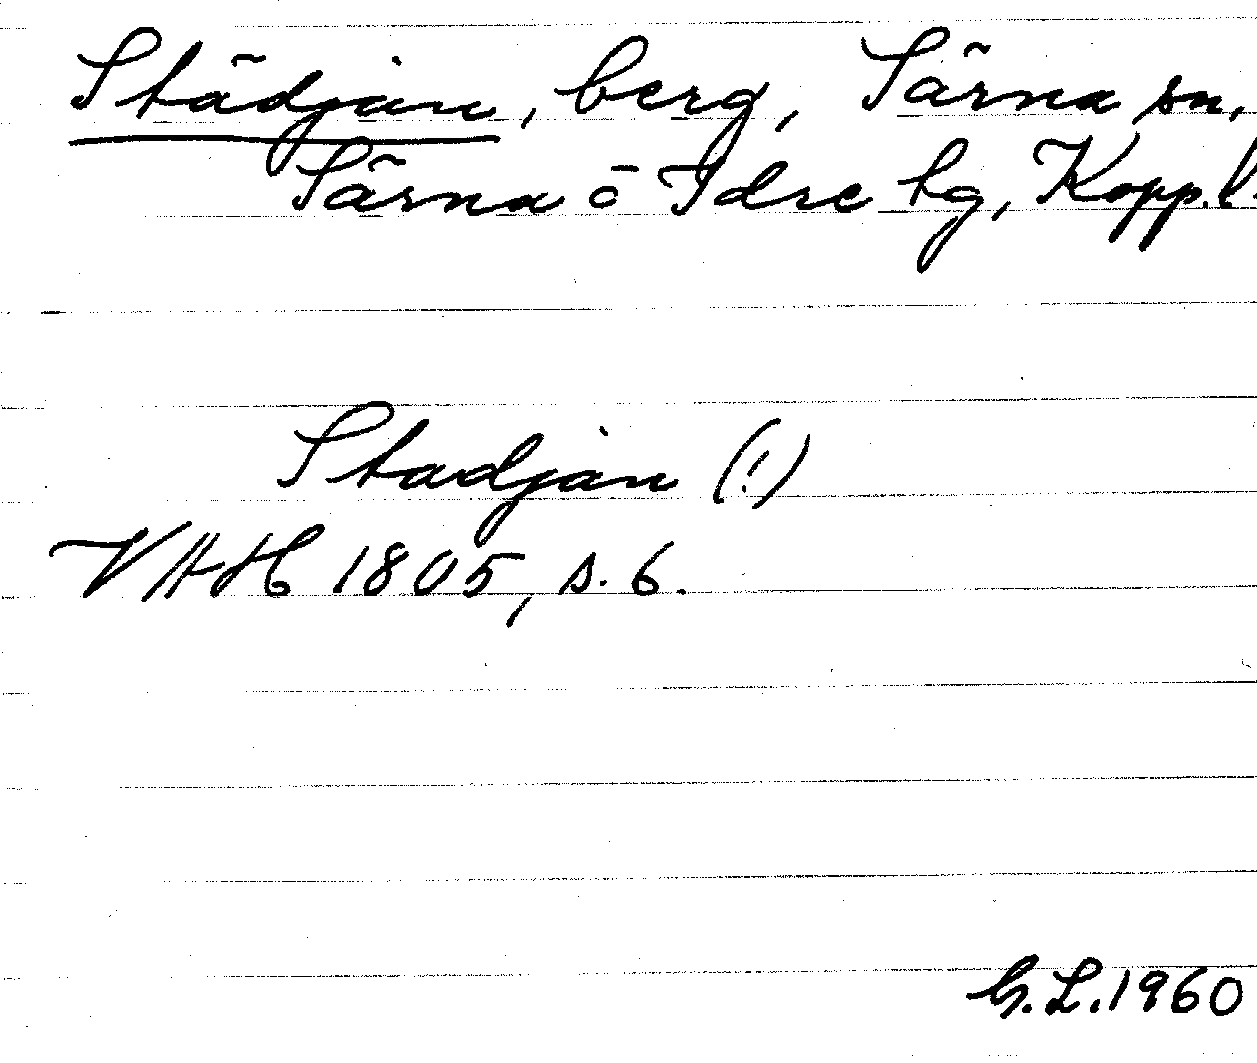 Städjan, berg, Särna sn,
Särna o Idre tg, Kopp. l.
Stadjan (!)
VAH 1805, s. 6.
G. L. 1960